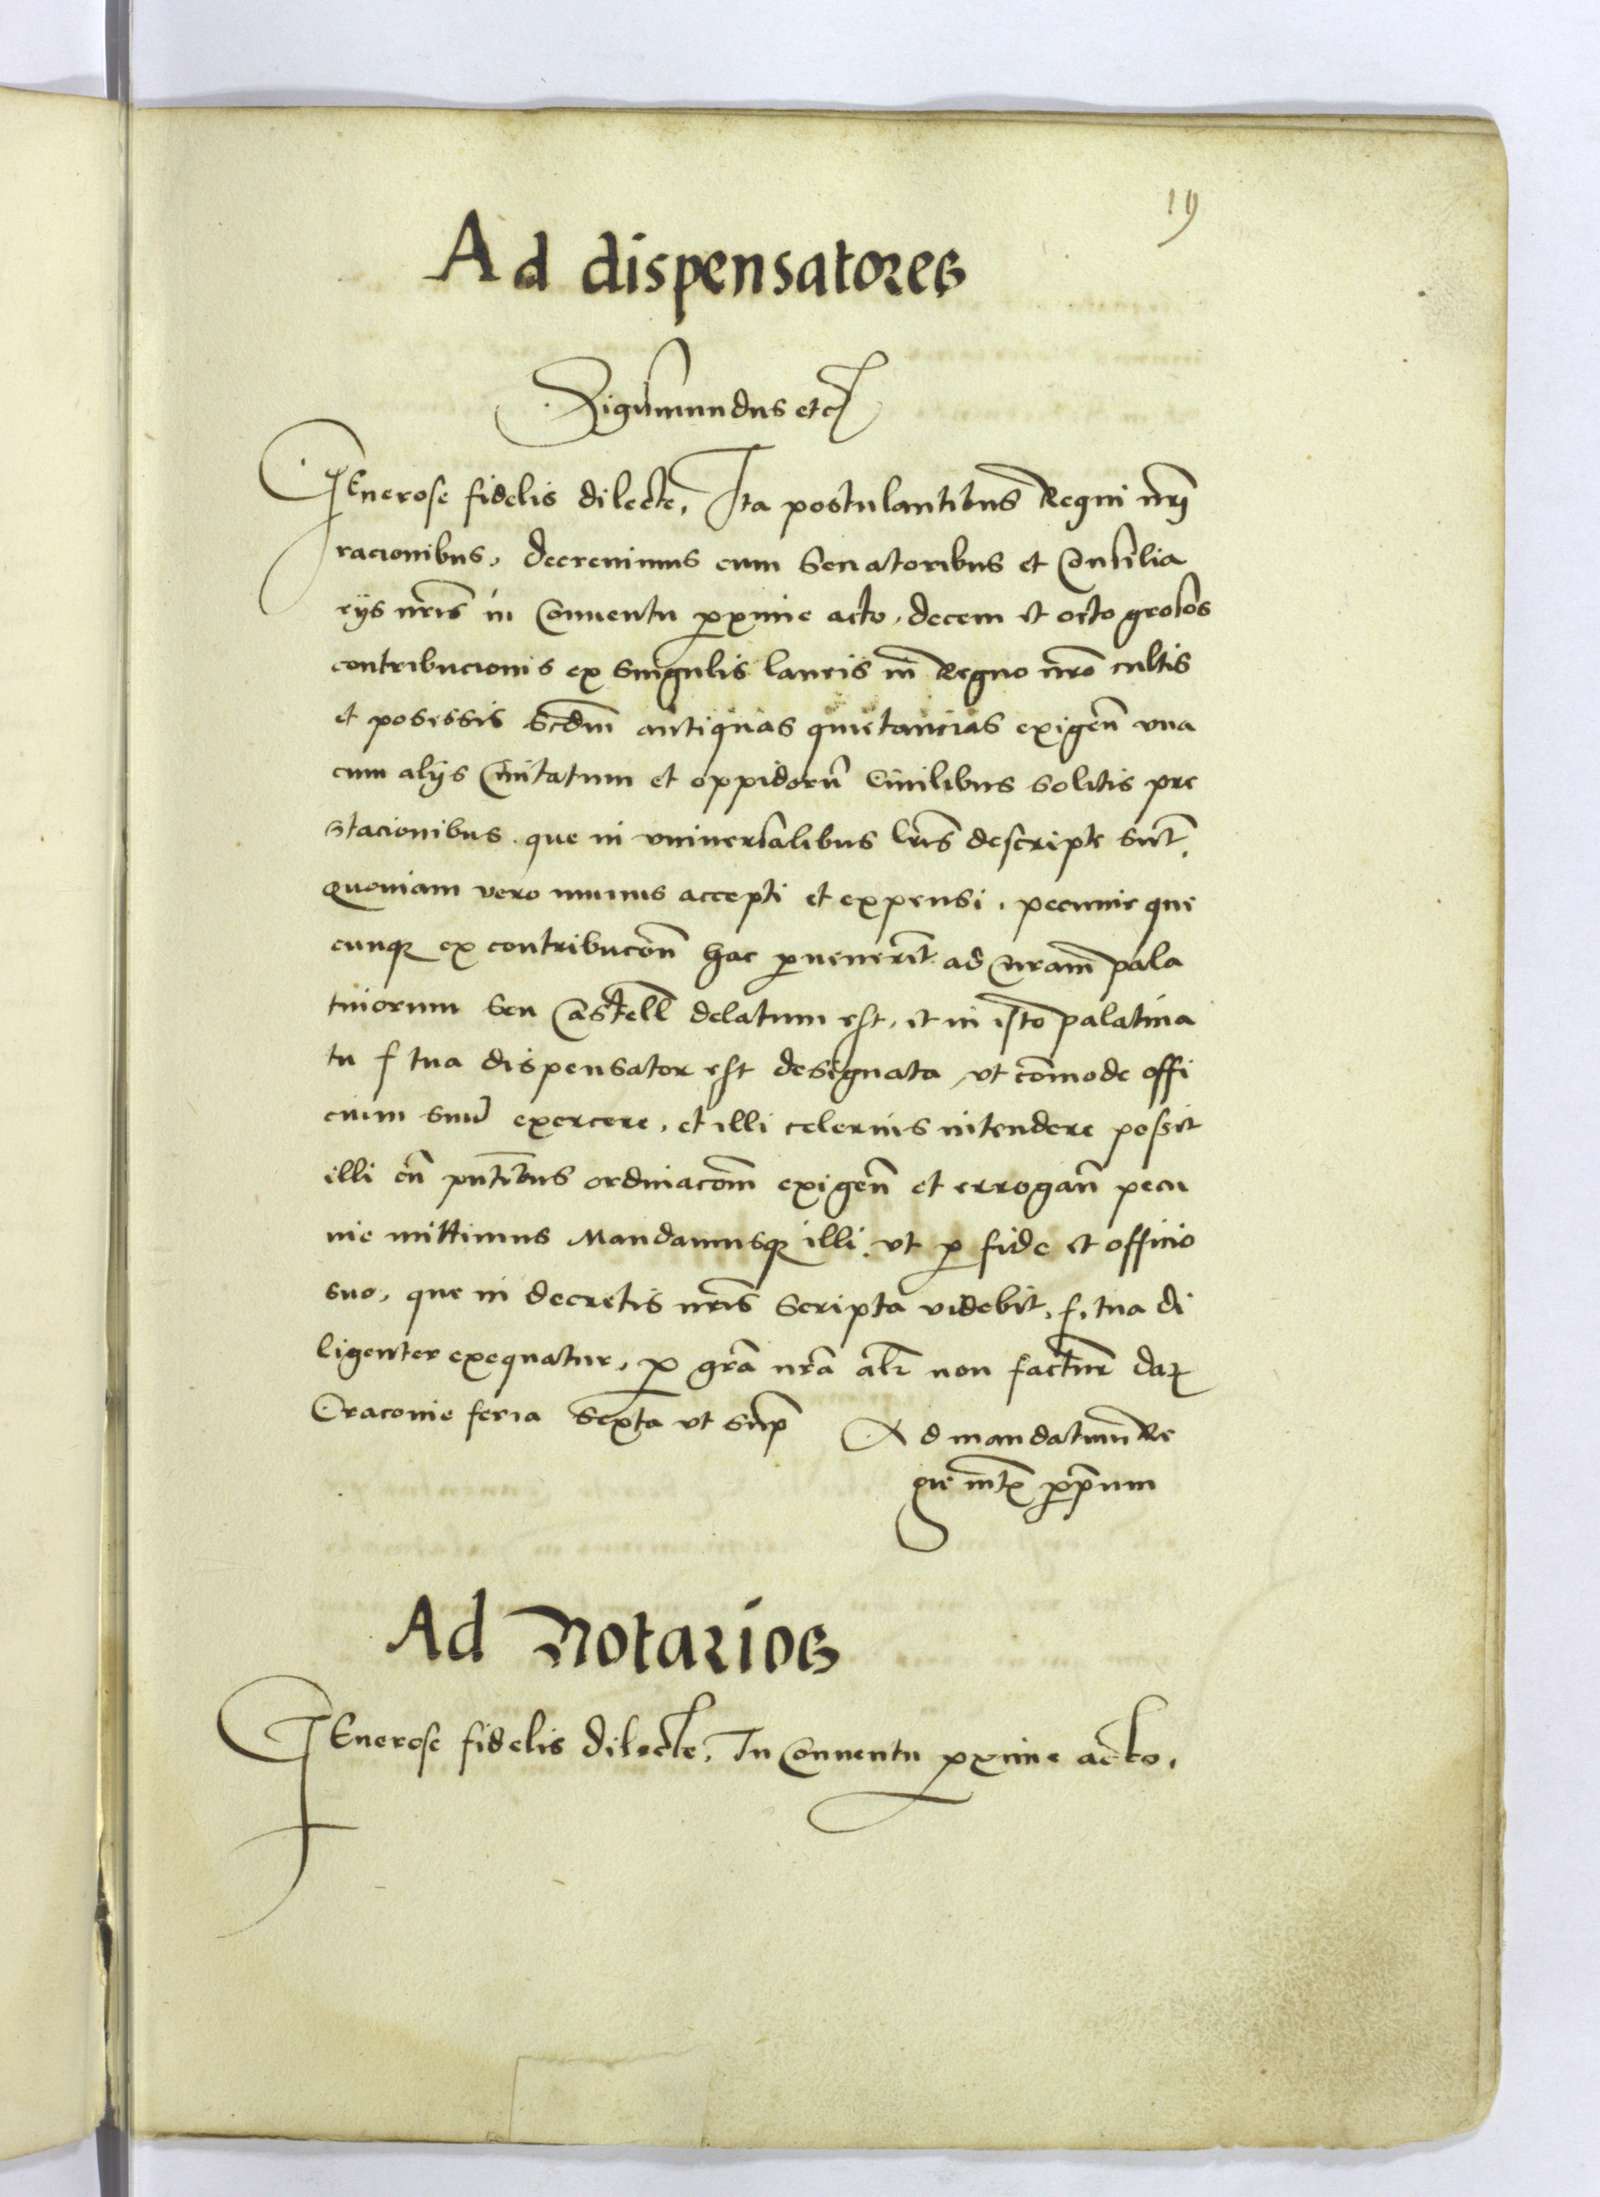 19
Ad dispensatores
Sigismundus etc
GEnerose fidelis dilecte, Ita postulantibus Regni nrj
racionibus, decreuimus cum Senatoribus et Consilia
rijs nris in Conuentu pxime acto, decem et octo grosos
contribucionis ex singulis laneis in Regno nro cultis
et posessis scdm antiquas quietancias exigen vna
cum alijs Ciuitatum et oppidoru Ciuilibus solitis pre
stacionibus que in vniuersalibus lris descripte sūt,
Quoniam vero munus accepti et expensi, pecunie que
cunq ex contribucon hac puenerit ad curam pala
tinorum seu Castell delatum est, et in isto palatina
tu f tua dispensator est designata, vt comode offi
cium suu exercere, et illi celerius intendere possit
illi cu pntibus ordinacom exigen et errogan pecu
nie mittimus Mandamusq illi, vt p fide et officio
suo, que in decretis nris scripta videbit, f, tua di
ligenter exequatur, p gra nra alr non factur dat
Cracouie feria sexta vt sup
Ad mandatum Re
gie mtis ppium
Ad Notarios
GEnerose fidelis dilecte, In Conuentu pxime acto,